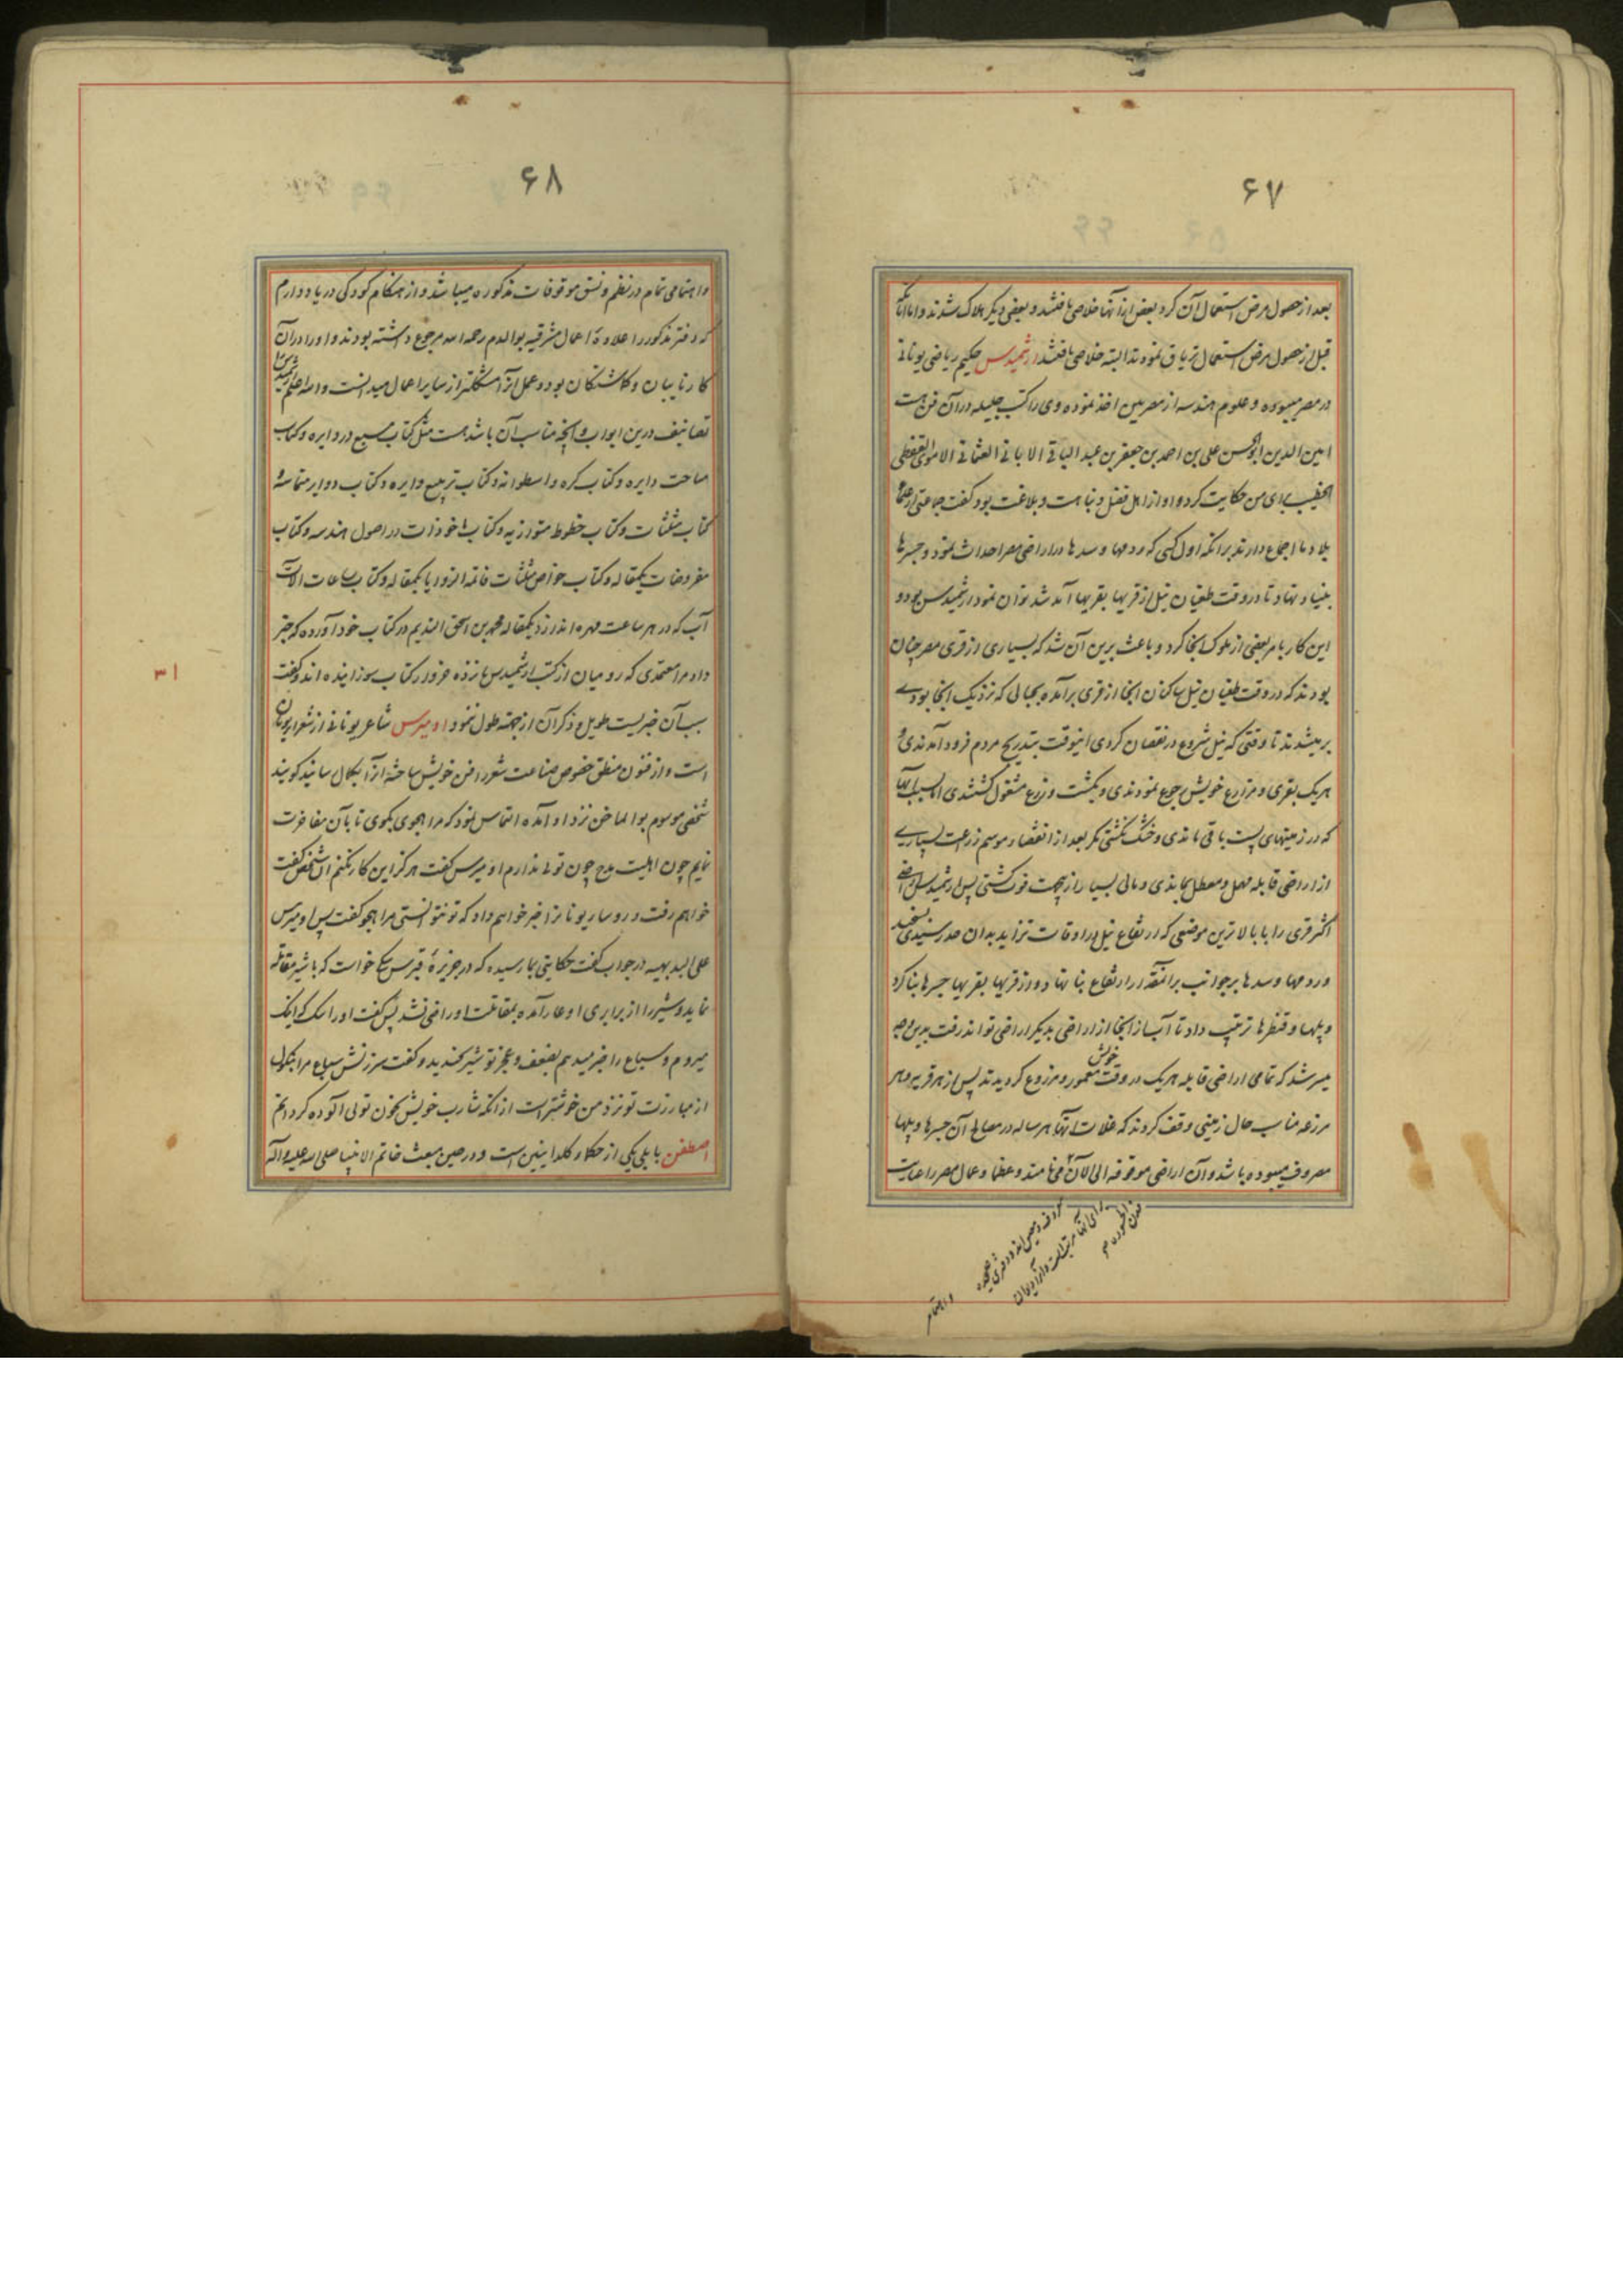 ۶۷
بعد از حصول مرض استعمال آن کرد بعض از آنها خلاصی یافتند و بعضی دیگر هلاک شدند و اما آنانکه
قبل از حصول مرض استعمال تریاق نمودند البته خلاصی یافتند ارشمیدس حکیم ریاضی یونانی
در مصر میبوده و علوم هندسه از مصریین اخذ نموده وی را کتب جلیله در آن فن هست
امین الدین ابوالحسن علی بن احمد بن جعفر بن عبد الباقی الاباقی العثمانی الاموی القفطی
الخطیب برای من حکایت کرد و او از اهل فضل و نباهت و بلاغت بود گفت جماعتی از علماء
بلاد ما اجماع دارند برآنکه اول کسی که ردمها و سدها در اراضی مصر احداث نمود و جسرها
بنیاد نهاد تا در وقت طغیان نیل از قریها بقریها آمد شد توان نمود ارشمیدس بود و
این کار بامر بعضی از ملوک آنجا کرد و باعث برین آن شد که بسیاری از قری مصر چنان
بودند که در وقت طغیان نیل ساکنان آنجا از قری برآمده بجبالی که نزدیک آنجا بودے
برمیشدند تا وقتی که نیل شروع در نقصان کردی اینوقت بتدریج مردم فرود آمدندی و
هریک بقری و مزارع خویش رجوع نمودندی و بکشت و زرع مشغول گشتندی اما بسبب آبها
که در زمینهای پست باقی ماندی و خشک نگشتی مگر بعد از انقضاء موسم زرعت بسیاری
از اراضی قابله مهمل و معطل بماندی و مالی بسیار ازین جهت فوت گشتی پس ارشمیدس اراضی
اکثر قری را با بالاترین موضعی که ارتفاع نیل در اوقات تزاید بدان حد رسیدی بسنجید
و ردمها و سدها بر جوانب بر آنمقدار ارتفاع بنا نهاد و از قریها بقریها جسرها بنا کرد
و پلها و قنطرها ترتیب داد تا آب از آنجا از اراضی بدیگر اراضی تواند رفت بدین وجه
میسر شد که تمامی اراضی قابله هریک در وقت خویش معمور و مزروع گردیدند پس از هر قریه و هر
مزرعه مناسب حال زمینی وقف کردند که غلات آنها هرساله در مصالح آن جسرها و پلها
مصروف میبوده باشد و آن اراضی موقوفه الی الان می‌نامند و عظما و عمال مصر را عنایت
و اهتمام
۶۸
و اهتمامی تمام در نظم و نسق موقوفات مذکوره میباشد و از هنگام کودکی در یاد دارم
که دفتر مذکور را علاوهٔ اعمال مشرقیه بوالدم رحمه الله مرجوع داشته بودند و او را در آن
کار نایبان و گماشتگان بود و عمل آنرا مشکلتر از سایر اعمال میدانست والله اعلم ارشمیدس را
تصانیف درین ابواب و آنچه مناسب آن باشد هست مثل کتاب مسبع در دایره و کتاب
مساحت دایره و کتاب کره و اسطوانه و کتاب تربیع دایره و کتاب دوایر متماسه
کتاب مثلثات و کتاب خطوط متوازیه و کتاب ماخوذات در اصول هندسه و کتاب
مفروضات یکمقاله و کتاب خواص مثلثات قائمه الزوایا یکمقاله و کتاب ساعات الات
آب که در هر ساعت مهره اندازد یکمقاله محمد بن اسحق الندیم در کتاب خود آورده که خبر
داد مرا معتمدی که رومیان از کتب ارشمیدس پانزده خروار کتاب سوزانیده اند و گفت
سبب آن خبریست طویل و ذکر آن از جهته طول ننمود اومیرس شاعر یونانی از شعراء یونان
است و از فنون منطق خصوص صناعت شعر را فن خویش ساخته از ابکال سانید گویند
شخصی موسوم بوالماخن نزد او آمده التماس نمود که مرا هجوی بگوی تا بآن مفاخرت
نمایم چون اهلیت مدح چون توئی ندارم اومیرس گفت هرگز این کار نکنم آن شخص گفت
خواهم رفت و روساء یونانرا خبر خواهم داد که تو نتوانستی مرا هجو گفت پس اومیرس
علی البدیهه در جواب گفت حکایتی بما رسیده که در جزیرهٔ قبرس سگی خواست که با شیر مقاتله
نماید و شیر را از برابری او عار آمده بمقاتلت او راضی نشد پس گفت او را سگ که اینک
میروم و سباع را خبر میدهم بضعف و عجز تو شیر بخندید و گفت سرزنش سباع مرا بنکول
از مبارزت تو نزد من خوشتر است از آنکه شارب خویش بخون توئی آلوده گردانم
اصطفن بابلی یکی از حکماء کلدانیین است و در حین مبعث خاتم الانبیا صلی الله علیه و آله
۳۱